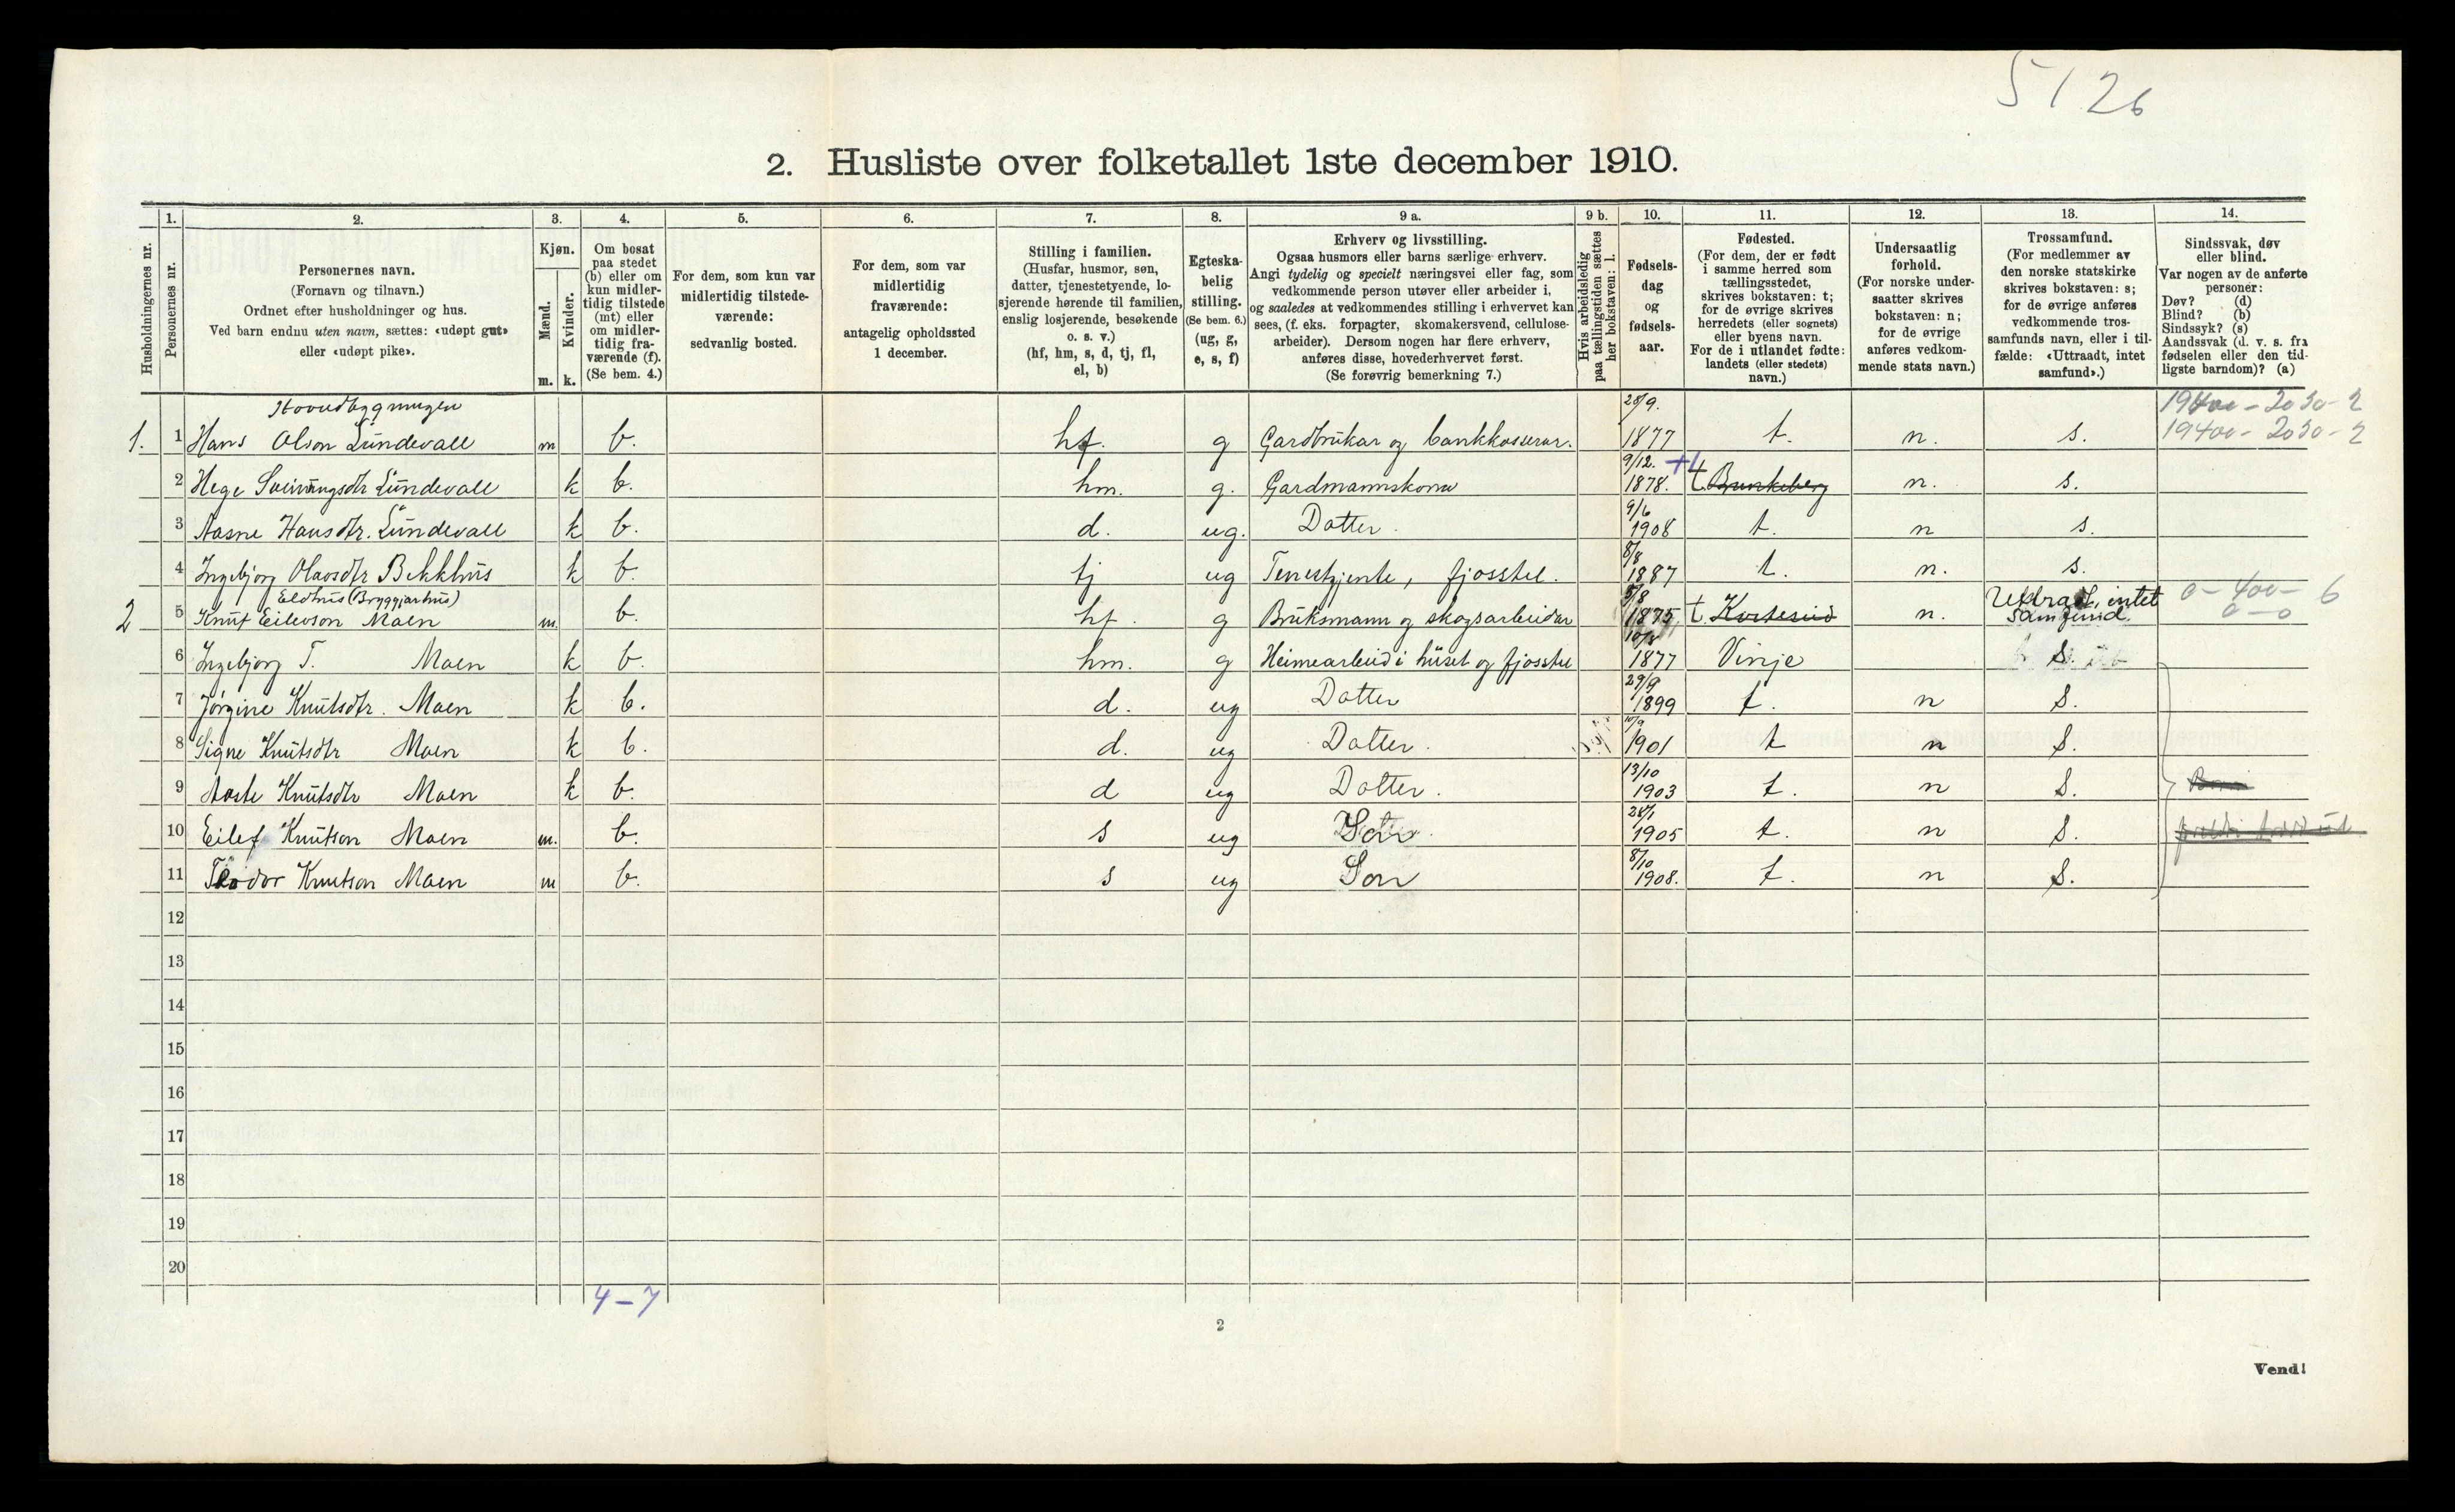 5/26
2. Husliste over folketallet 1ste december 1910.
1. 2. 3. 4. 5. 6. 7. 8. 9 a. 9 b. 10. 11. 12. 13. 14.
Husholdningernes nr.
Personernes nr.
Personernes navn.
(Fornavn og tilnavn.)
Ordnet efter husholdninger og hus.
Ved barn endnu uten navn, sættes: «udøpt gut»
eller «udøpt pike».
Kjøn.
Mænd.
m.
Kvinder.
k.
Om bosat
paa stedet
(b) eller om
kun midler-
tidig tilstede
(mt) eller
om midler-
tidig fra-
værende (f).
(Se bem. 4.)
For dem, som kun var
midlertidig tilstede-
værende:
sedvanlig bosted.
For dem, som var
midlertidig
fraværende:
antagelig opholdssted
1 december.
Stilling i familien.
(Husfar, husmor, søn,
datter, tjenestetyende, lo-
sjerende hørende til familien,
enslig losjerende, besøkende
o. s. v.)
(hf, hm, s, d, tj, fl,
el, b)
Egteska-
belig
stilling.
(Se bem. 6.)
(ug, g,
e, s, f)
Erhverv og livsstilling.
Ogsaa husmors eller barns særlige erhverv.
Angi tydelig og specielt næringsvei eller fag, som
vedkommende person utøver eller arbeider i,
og saaledes at vedkommendes stilling i erhvervet kan
sees, (f. eks. forpagter, skomakersvend, cellulose-
arbeider). Dersom nogen har flere erhverv,
anføres disse, hovederhvervet først.
(Se forøvrig bemerkning 7.)
Hvis arbeidsledig
paa tællingstiden sættes
her bokstaven: l.
Fødsels-
dag
og
fødsels-
aar.
Fødested.
(For dem, der er født
i samme herred som
tællingsstedet,
skrives bokstaven: t;
for de øvrige skrives
herredets (eller sognets)
eller byens navn.
For de i utlandet fødte:
landets (eller stedets)
navn.)
Undersaatlig
forhold.
(For norske under-
saatter skrives
bokstaven: n;
for de øvrige
anføres vedkom-
mende stats navn.)
Trossamfund.
(For medlemmer av
den norske statskirke
skrives bokstaven: s;
for de øvrige anføres
vedkommende tros-
samfunds navn, eller i til-
fælde: «Uttraadt, intet
samfund».)
Sindssvak, døv
eller blind.
Var nogen av de anførte
personer:
Døv? (d)
Blind? (b)
Sindssyk? (s)
Aandssvak (d. v. s. fra
fødselen eller den tid-
ligste barndom)? (a)
Hovudbygningen 28/9. 19400 - 2030 - 2
1. 1 Hans Olson Lundevall m b. hf. g Gardbrukar og bankkasserar. 1877 t. n. s. 19400 - 2030 - 2
9/12.
2 Hege Sveinungsdtr Lundevall k b. hm. g. Gardmannskona 1878. t. Brunkeberg n. s.
9/6
3 Aasne Hansdtr. Lundevall k b. d. ug. Dotter. 1908 t. n s.
8/8
4 Ingebjorg Olavsdtr Bekkhus k b. tj ug Tenestjente, fjosstel. 1887 t. n. s.
Eldhus (Bryggjarhus) 5/8 Uttraadt, intet 0 - 400 - 6
2 5 Knut Eilevson Moen m. b. hf. g Bruksmann og skogsarbeidar 1875 t. Kviteseid n. samfund. 0 - 0
10/8
6 Ingebjorg T. Moen k b. hm. g Heimearbeid i huset og fjosstel 1877 Vinje s.
29/9
7 Jørgine Knutsdtr. Moen k b. d. ug Dotter 1899 t. n s.
10/9
8 Signe Knutsdtr Moen k b. d. ug Dotter. 1901 t n s.
13/10
9 Aaste Knutsdtr Moen k b. d ug Dotter. 1903 t. n s. Born
28/1
10 Eilef Knutson Moen m. b. s ug Son 1905 t. n s.
8/10
11 Teodor Knutson Moen m b. s ug Son 1908. t. n s.
12
13
14
15
16
17
18
19
20
4-7
2
Vend!